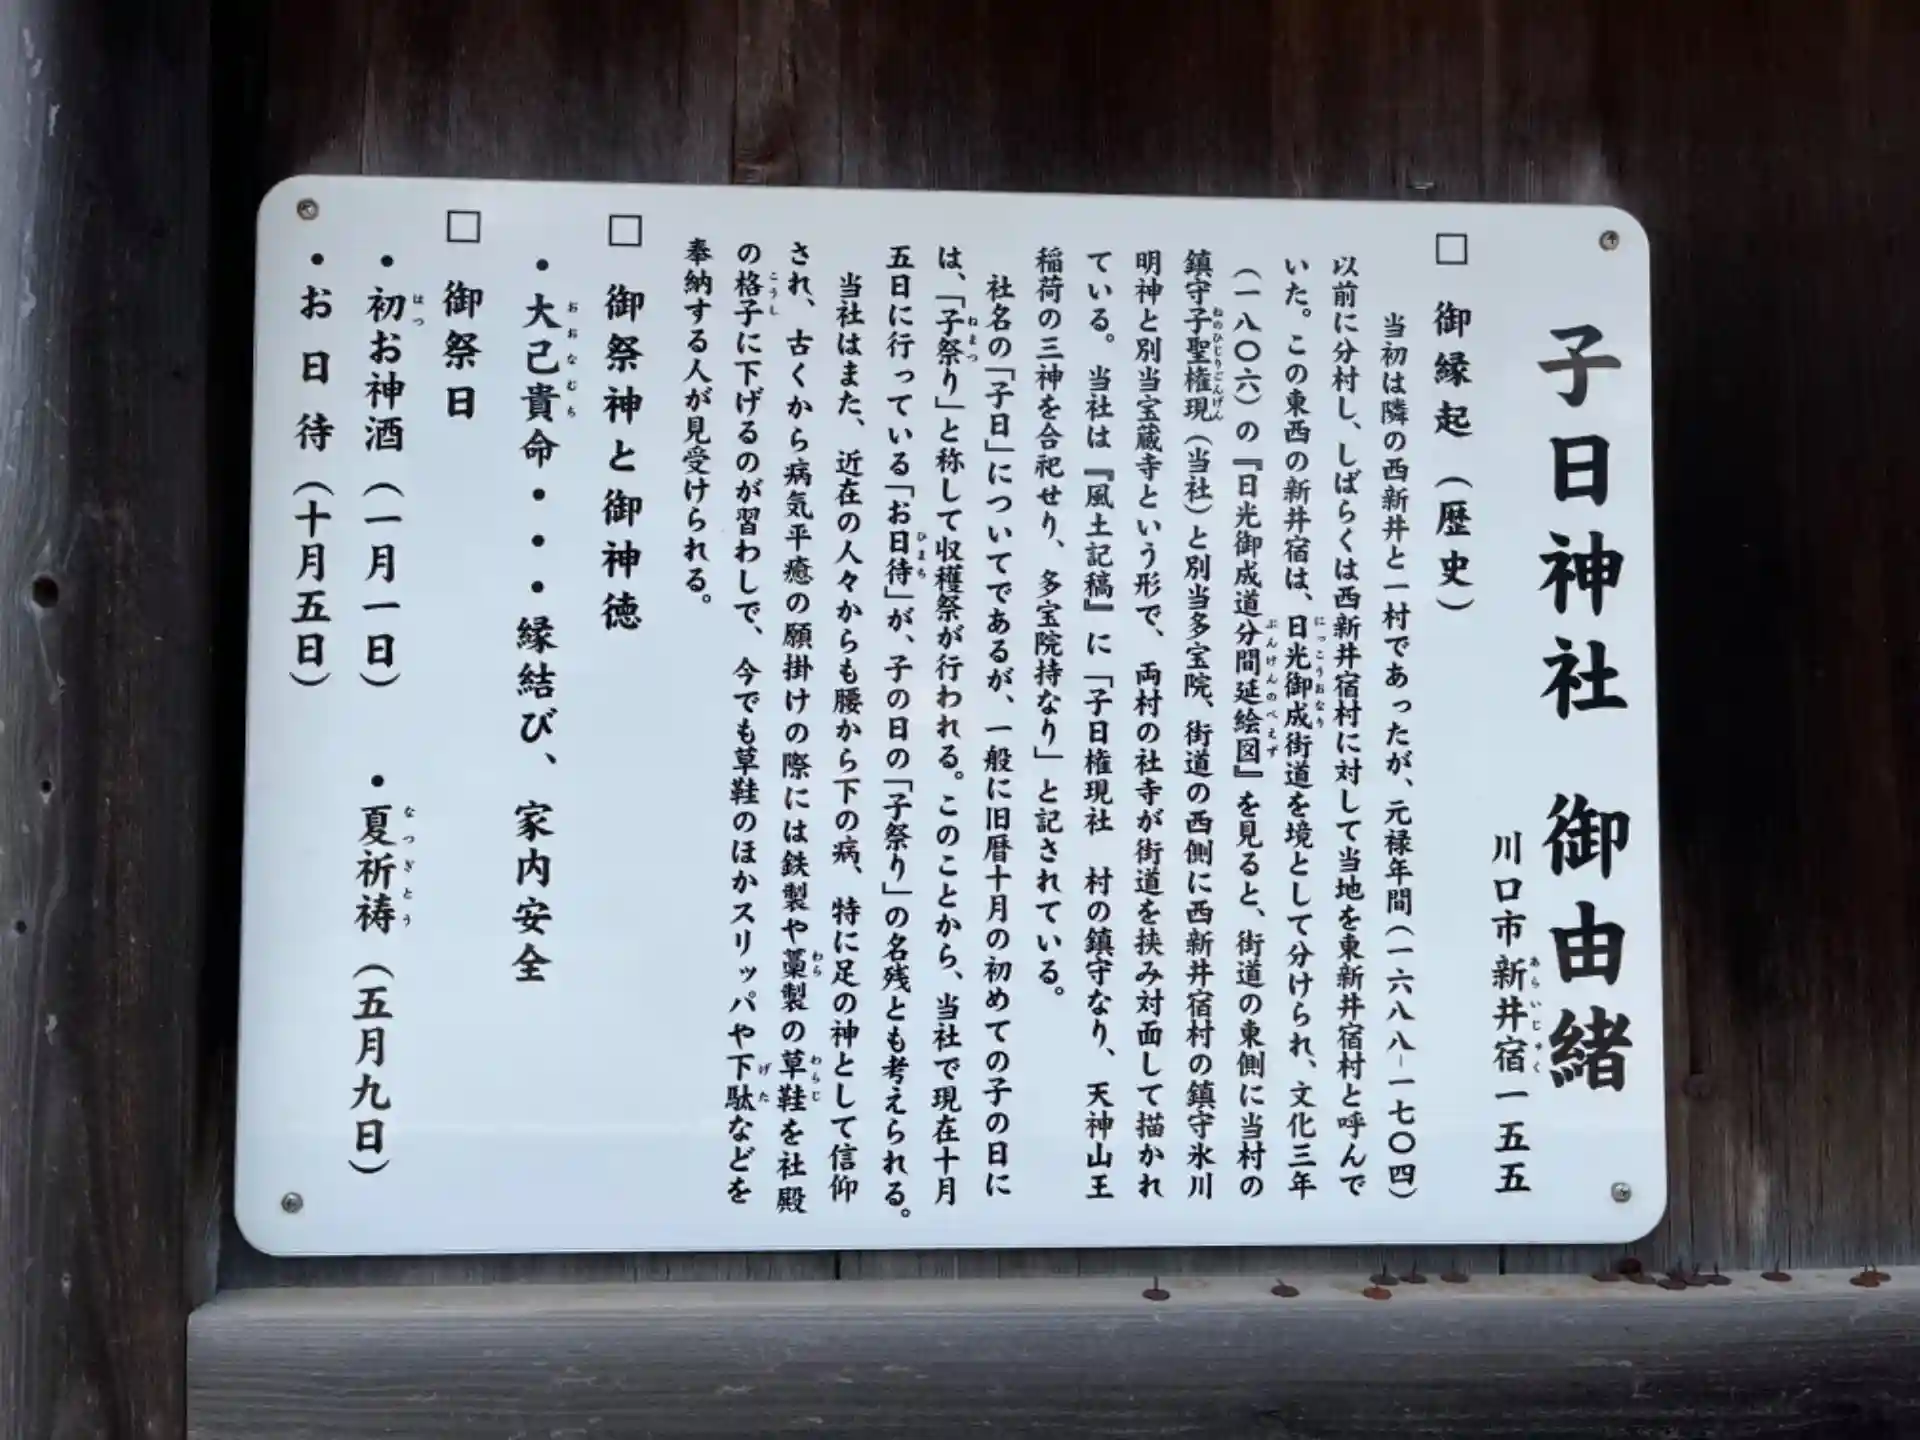 子日神社 御由緒
川口市新井宿一五五
□ 御縁起（歴史）
当初は隣の西新井と一村であったが、元禄年間（一六八八－一七〇四）
以前に分村し、しばらくは西新井宿村に対して当地を東新井宿村と呼んで
いた。この東西の新井宿は、日光御成街道を境として分けられ、文化三年
（一八〇六）の『日光御成道分間延絵図』を見ると、街道の東側に当村の
鎮守子聖権現（当社）と別当多宝院、街道の西側に西新井宿村の鎮守氷川
明神と別当宝蔵寺という形で、両村の社寺が街道を挟み対面して描かれ
ている。当社は『風土記稿』に「子日権現社 村の鎮守なり、天神山王
稲荷の三神を合祀せり、多宝院持なり」と記されている。
社名の「子日」についてであるが、一般に旧暦十月の初めての子の日に
は、「子祭り」と称して収穫祭が行われる。このことから、当社で現在十月
五日に行っている「お日待」が、子の日の「子祭り」の名残とも考えられる。
当社はまた、近在の人々からも腰から下の病、特に足の神として信仰
され、古くから病気平癒の願掛けの際には鉄製や藁製の草鞋を社殿
の格子に下げるのが習わしで、今でも草鞋のほかスリッパや下駄などを
奉納する人が見受けられる。
□ 御祭神と御神徳
・大己貴命・・・縁結び、家内安全
□ 御祭日
・初お神酒（一月一日） ・夏祈祷（五月九日）
・お日待（十月五日）